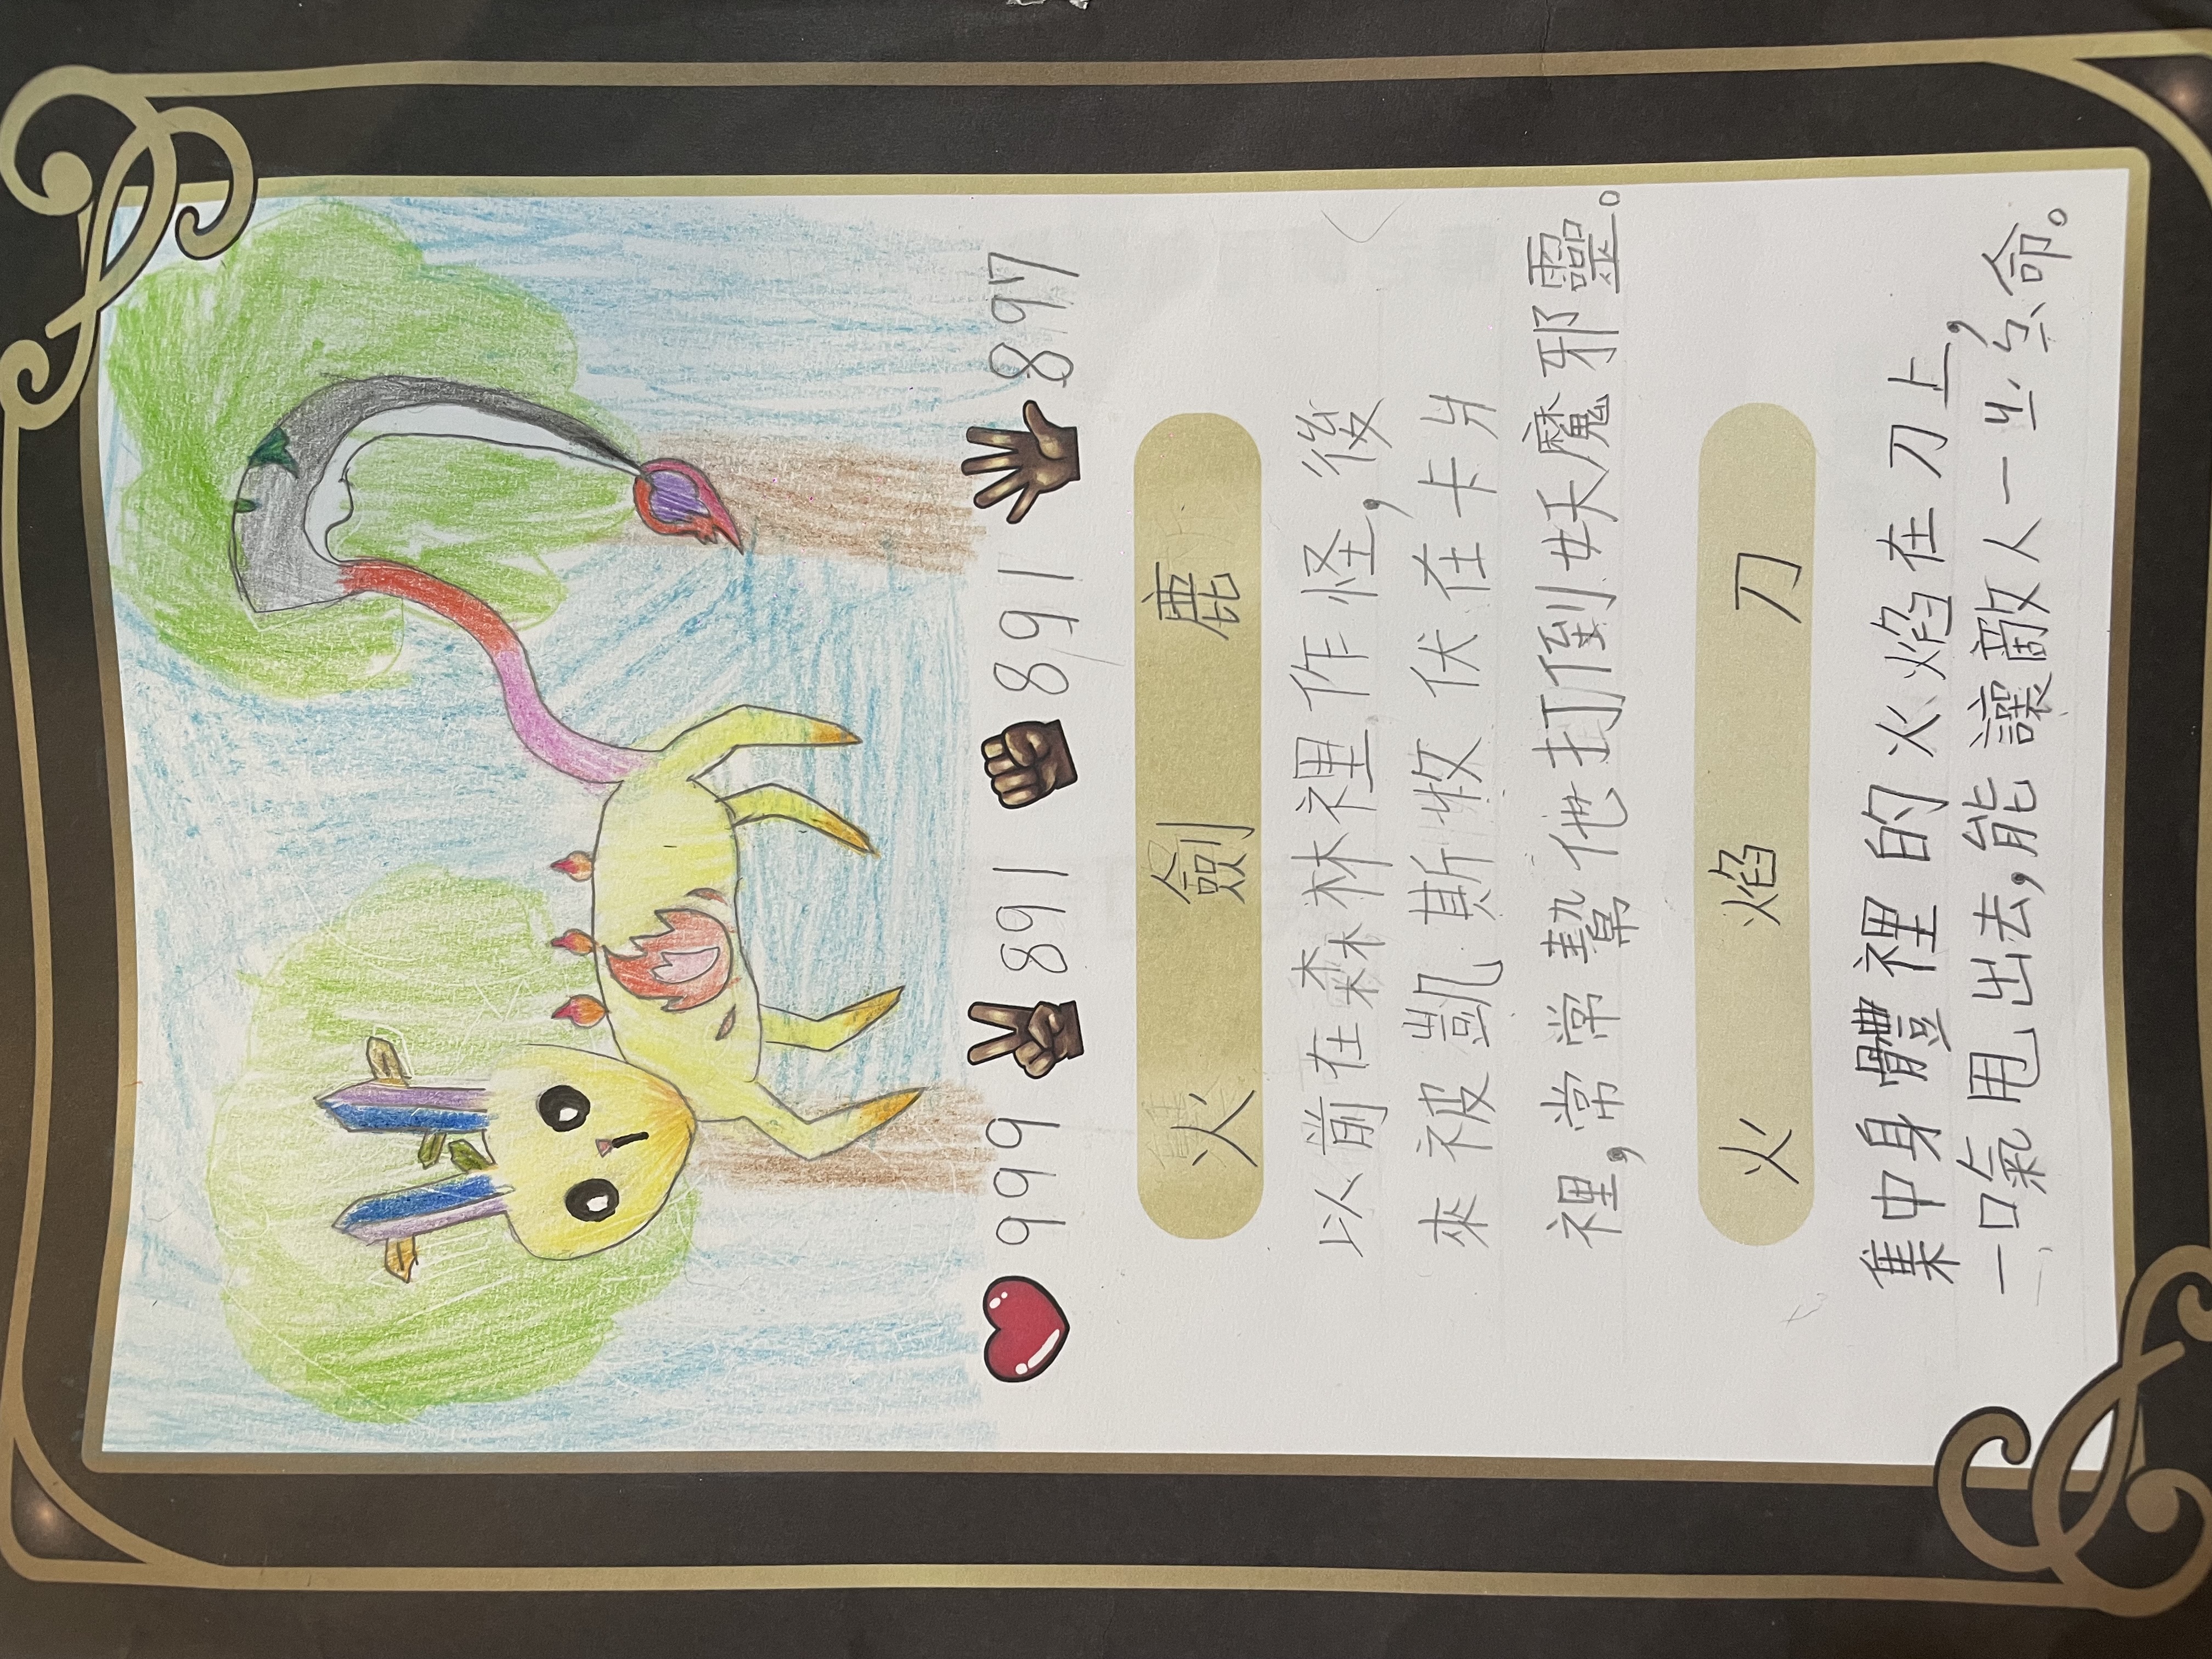 999 891 891 897
火劍鹿
以前在森林裡作怪,後
來被凱斯收伏在卡片
裡,常常幫他打倒妖魔邪靈。
火焰刀
集中身體裡的火焰在刀上,
一口氣甩出去,能讓敵人一ㄓˊ命。